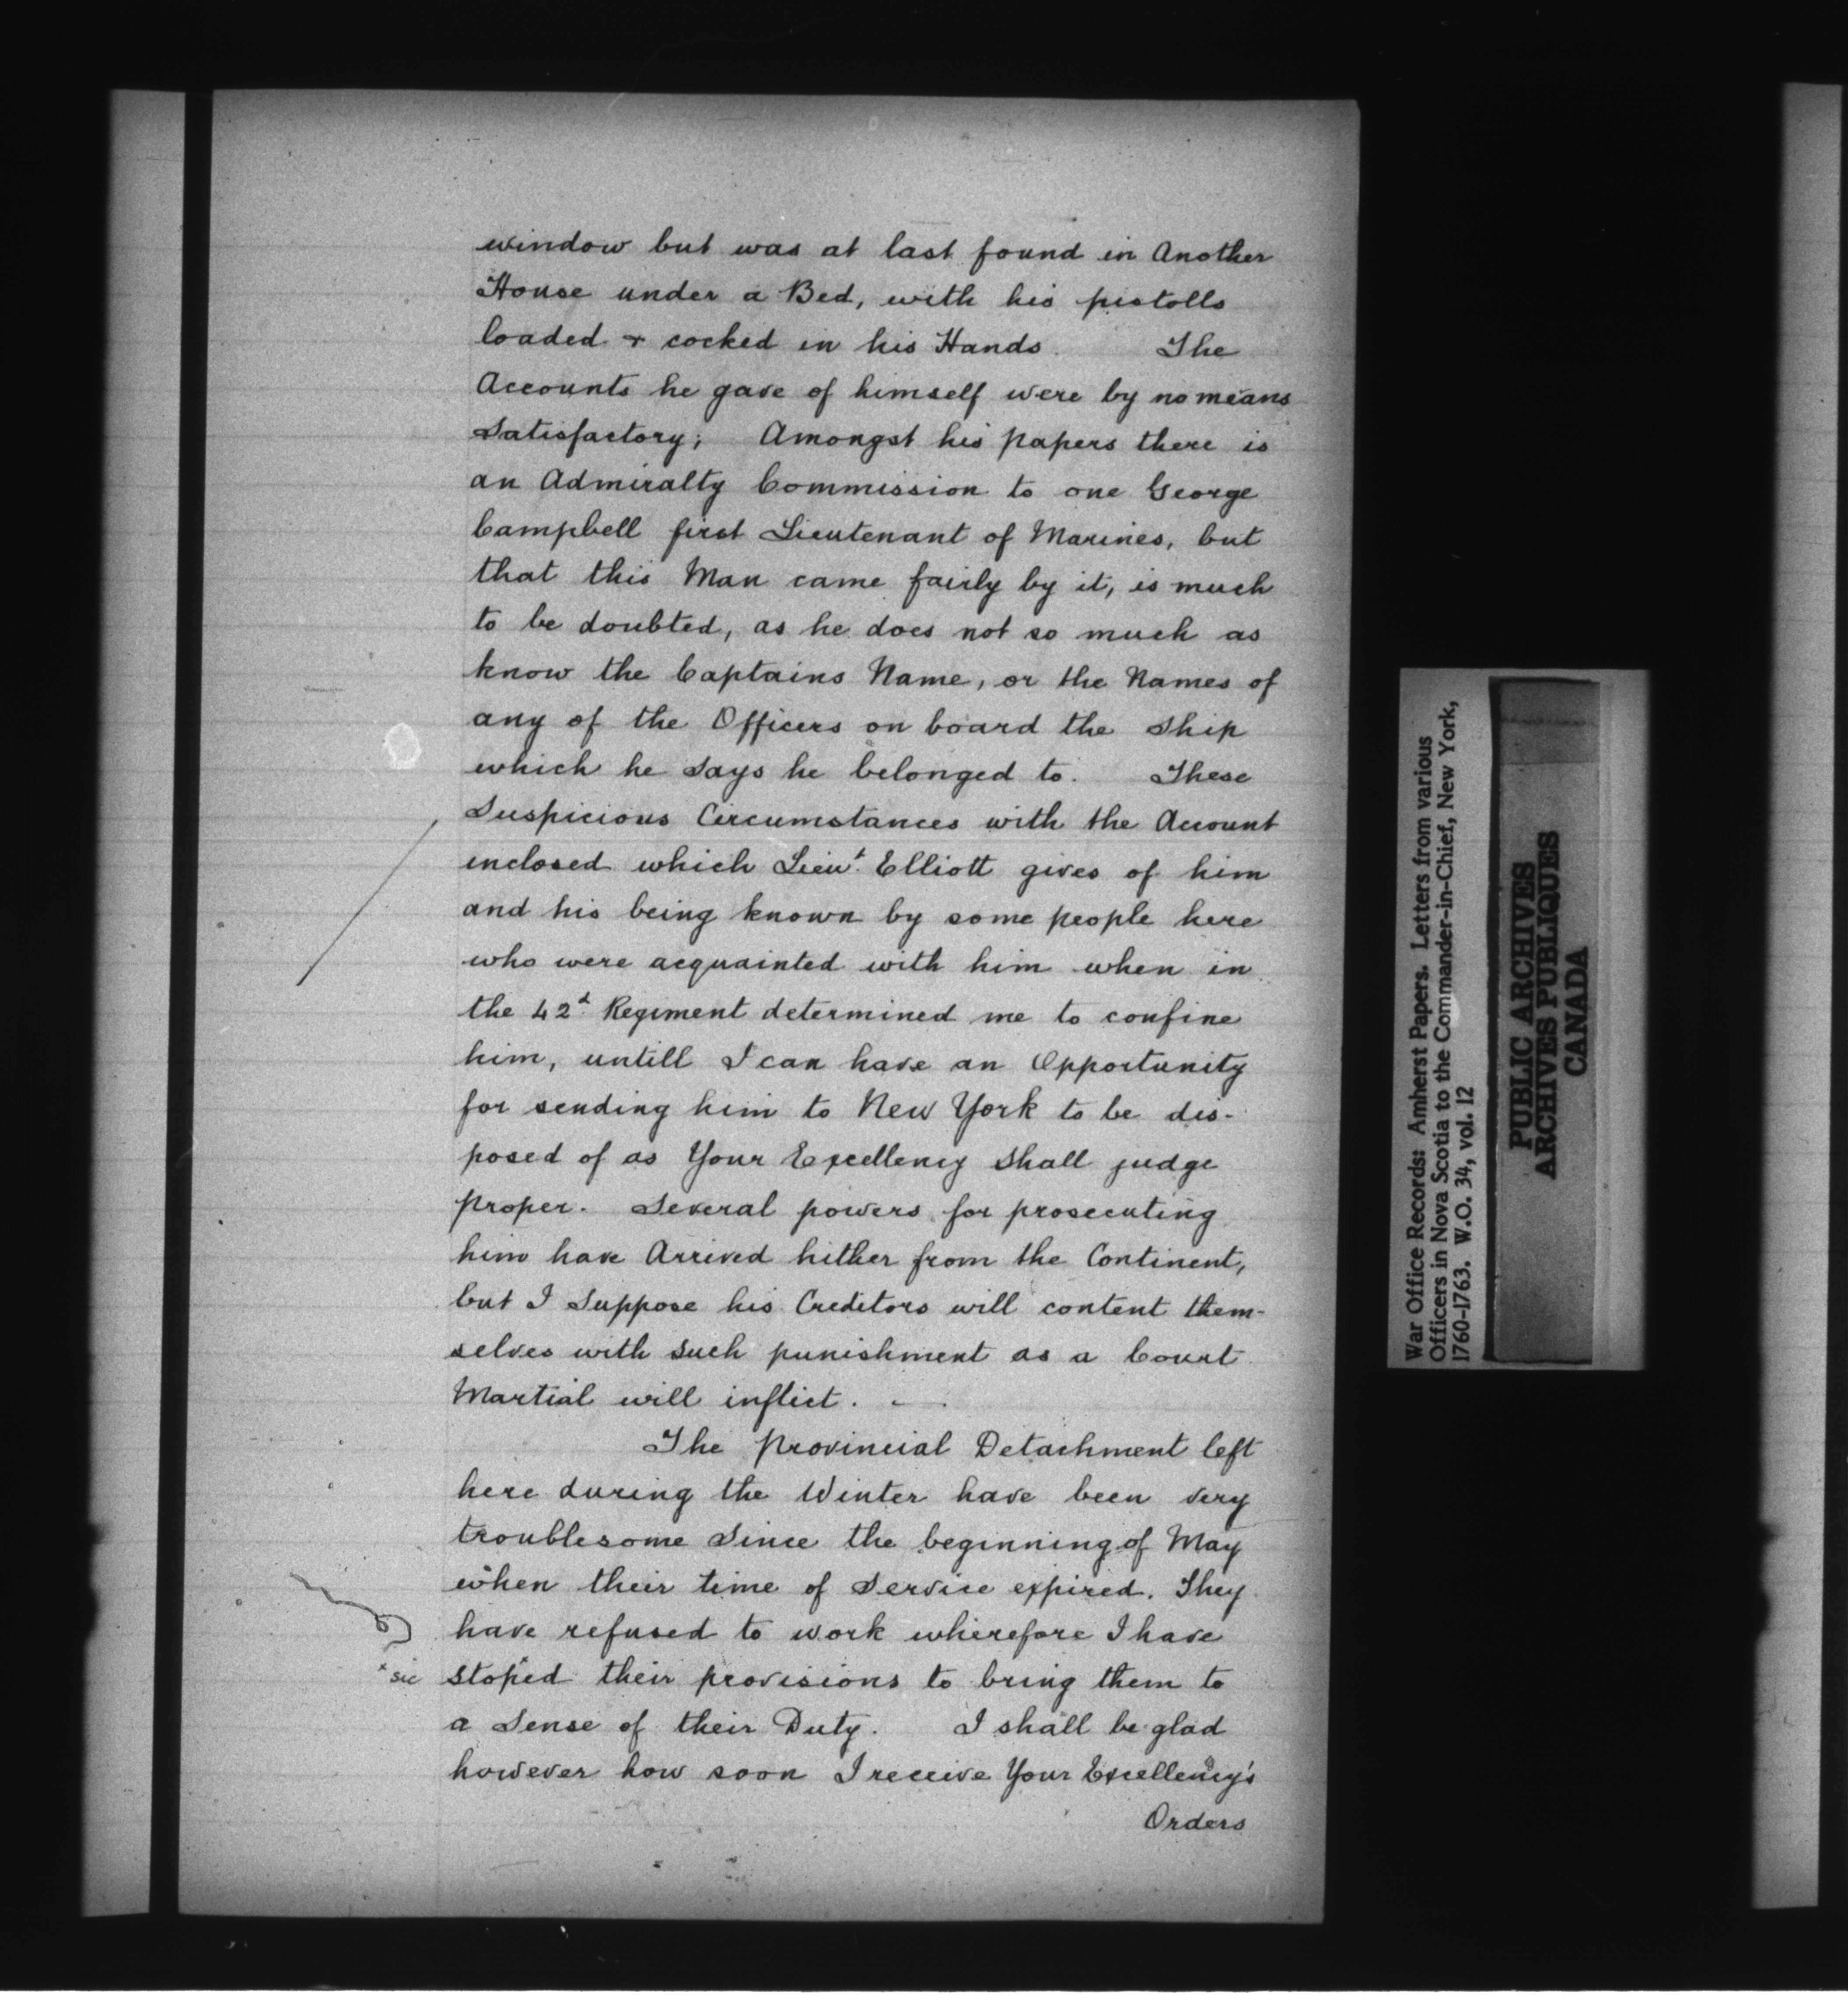 window but was at last found in Another
House under a Bed, with his pistolls
loaded & cocked in his Hands. The
Accounts he gave of himself were by no means
Satisfactory; Amongst his papers there is
an Admiralty Commission to one George
Campbell first Lieutenant of Marines, but
that this Man came fairly by it, is much
to be doubted, as he does not so much as
know the Captains Name, or the Names of
any of the Officers on board the Ship
which he Says he belonged to. These
Suspicious Circumstances with the Account
inclosed which Lieut. Elliott gives of him
and his being known by some people here
who were acquainted with him when in
the 42d. Regiment determined me to confine
him, untill I can have an Opportunity
for sending him to New York to be dis-
posed of as Your Excellency Shall judge
proper. Several powers for prosecuting
him have Arrived hither from the Continent,
but I Suppose his Creditors will content them-
selves with Such punishment as a Court
Martial will inflict. —
The Provincial Detachment left
here during the Winter have been very
troublesome Since the beginning of May
when their time of Service expired. They
have refused to work wherefore I have
* sic stoped their provisions to bring them to
a Sense of their Duty. I shall be glad
however how soon I receive Your Excellency's
Orders
War Office Records: Amherst Papers. Letters from various
Officers in Nova Scotia to the Commander-in-Chief, New York,
1760-1763. W.O. 34, vol. 12
PUBLIC ARCHIVES
ARCHIVES PUBLIQUES
CANADA